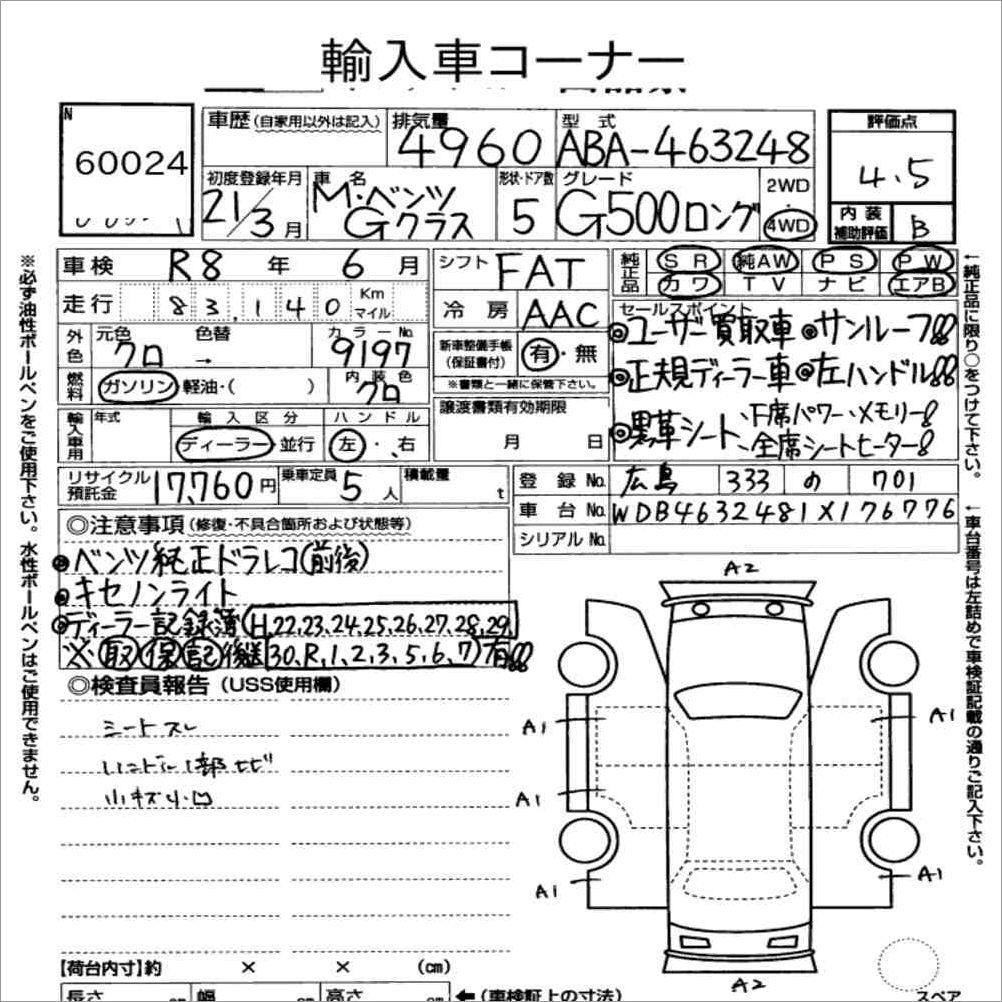 輸入車コーナー
N
60024
車歴 (自家用以外は記入)
排気量 4960
型式 ABA-463248
評価点 4.5
初度登録年月 21/3月
車名 M・ベンツ Gクラス
形状・ドア数 5
グレード G500ロング
2WD
4WD
内装補助評価 B
車検 R8年 6月
シフト FAT
純正品 SR 純AW PS PW
カワ TV ナビ エアB
走行 83,140 Km マイル
冷房 AAC
セールスポイント
◎ユーザー買取車 ◎サンルーフ!!
外色 元色 クロ 色替 → カラーNo. 9197
新車整備手帳 (保証書付) 有・無
※書類と一緒に保管下さい。
◎正規ディーラー車 ◎左ハンドル!!
燃料 ガソリン 軽油・( ) 内装色 クロ
譲渡書類有効期限
月 日
◎黒革シート
・下席パワー・メモリー!
・全席シートヒーター!
輸入車用 年式 輸入区分 ディーラー 並行 ハンドル 左・右
リサイクル預託金 17,760円
乗車定員 5人
積載量 t
登録No. 広島 333 の 701
車台No. WDB4632481X176776
シリアルNo.
◎注意事項 (修復・不具合箇所および状態等)
◎ベンツ純正ドラレコ(前後)
◎キセノンライト
◎ディーラー記録簿(H,22,23,24,25,26,27,28,29,
※取保記後送 30,R,1,2,3,5,6,7)有!!
◎検査員報告 (USS使用欄)
シートスレ
ハンドル1部セビ
小キズ小凹
A2
A1
A1
A1
A1
A1
A2
スペア
【荷台内寸】約 × × (cm)
長さ cm 幅 cm 高さ cm ←(車検証上の寸法)
※必ず油性ボールペンをご使用下さい。水性ボールペンはご使用できません。
←純正品に限り○をつけて下さい。
←車台番号は左詰めで車検証記載の通りご記入下さい。